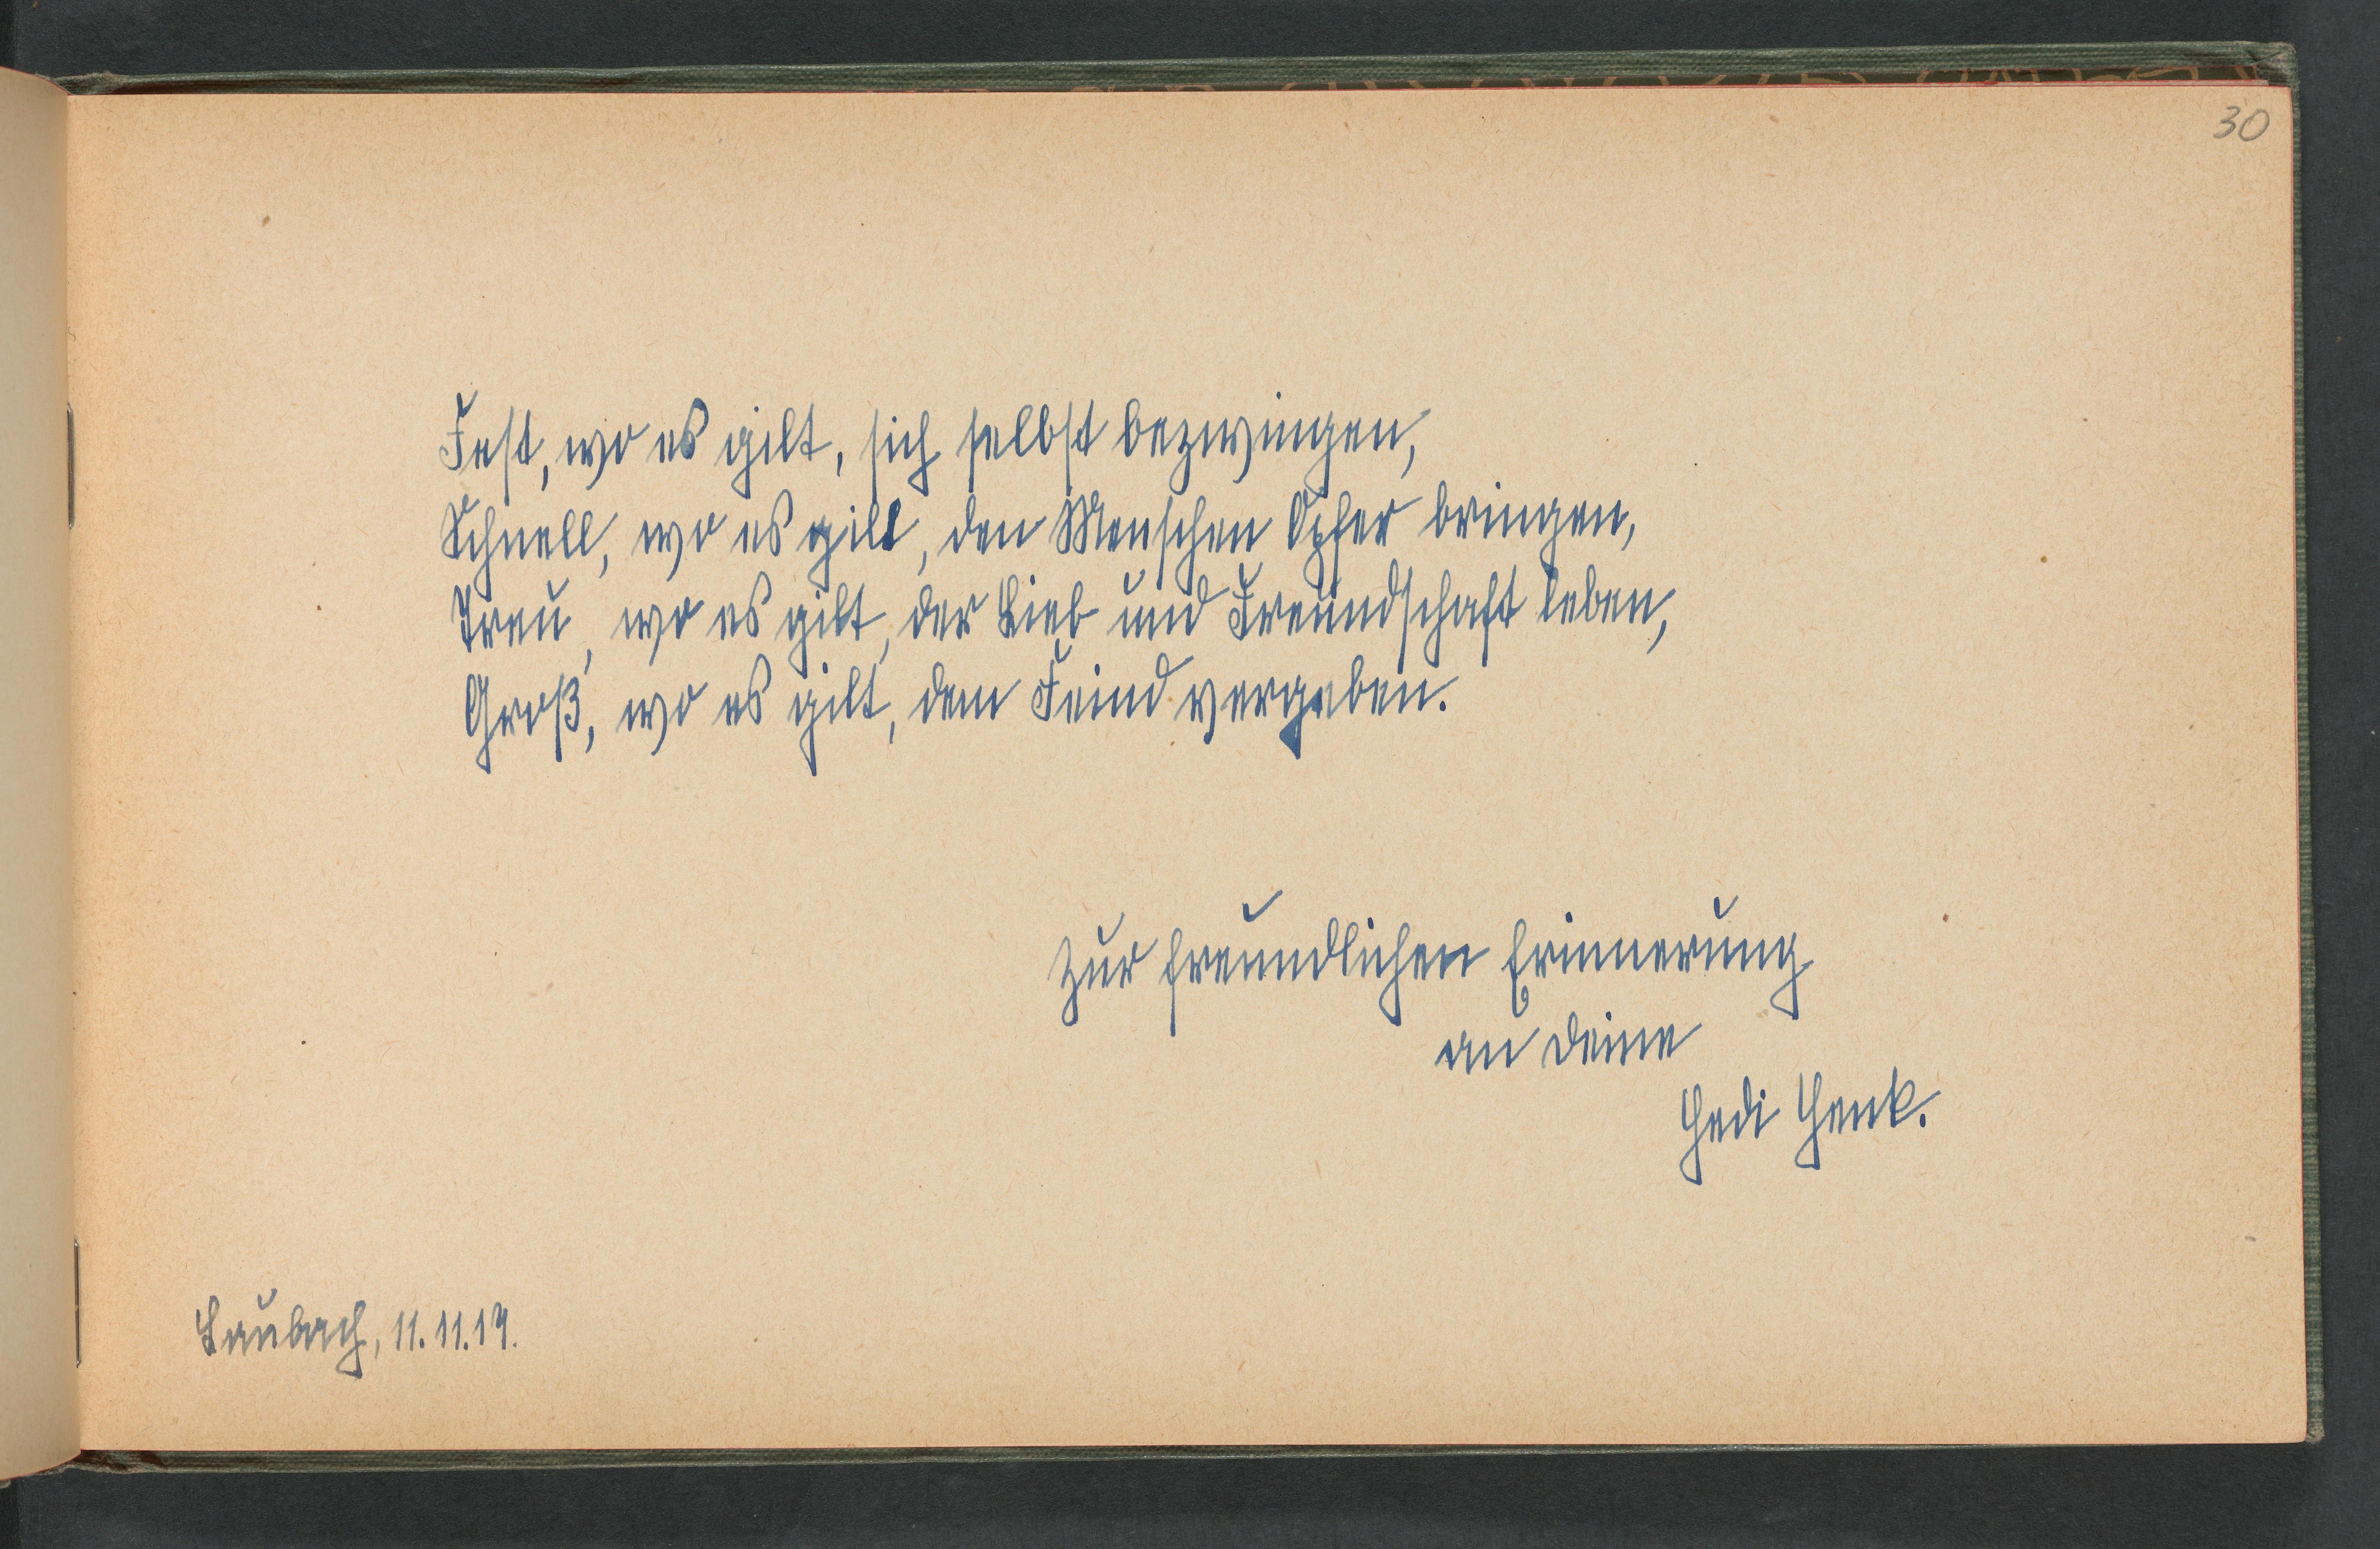 30
Fest, wo es gilt, sich selbst bezwingen,
Schnell, wo es gilt, den Menschen Opfer bringen,
Treu, wo es gilt, der Lieb und Freundschaft leben,
Groß, wo es gilt, dem Feind vergeben.
Zur freundlichen Erinnerung
an deine
Hedi Henk.
Laubach, 11.11.19.